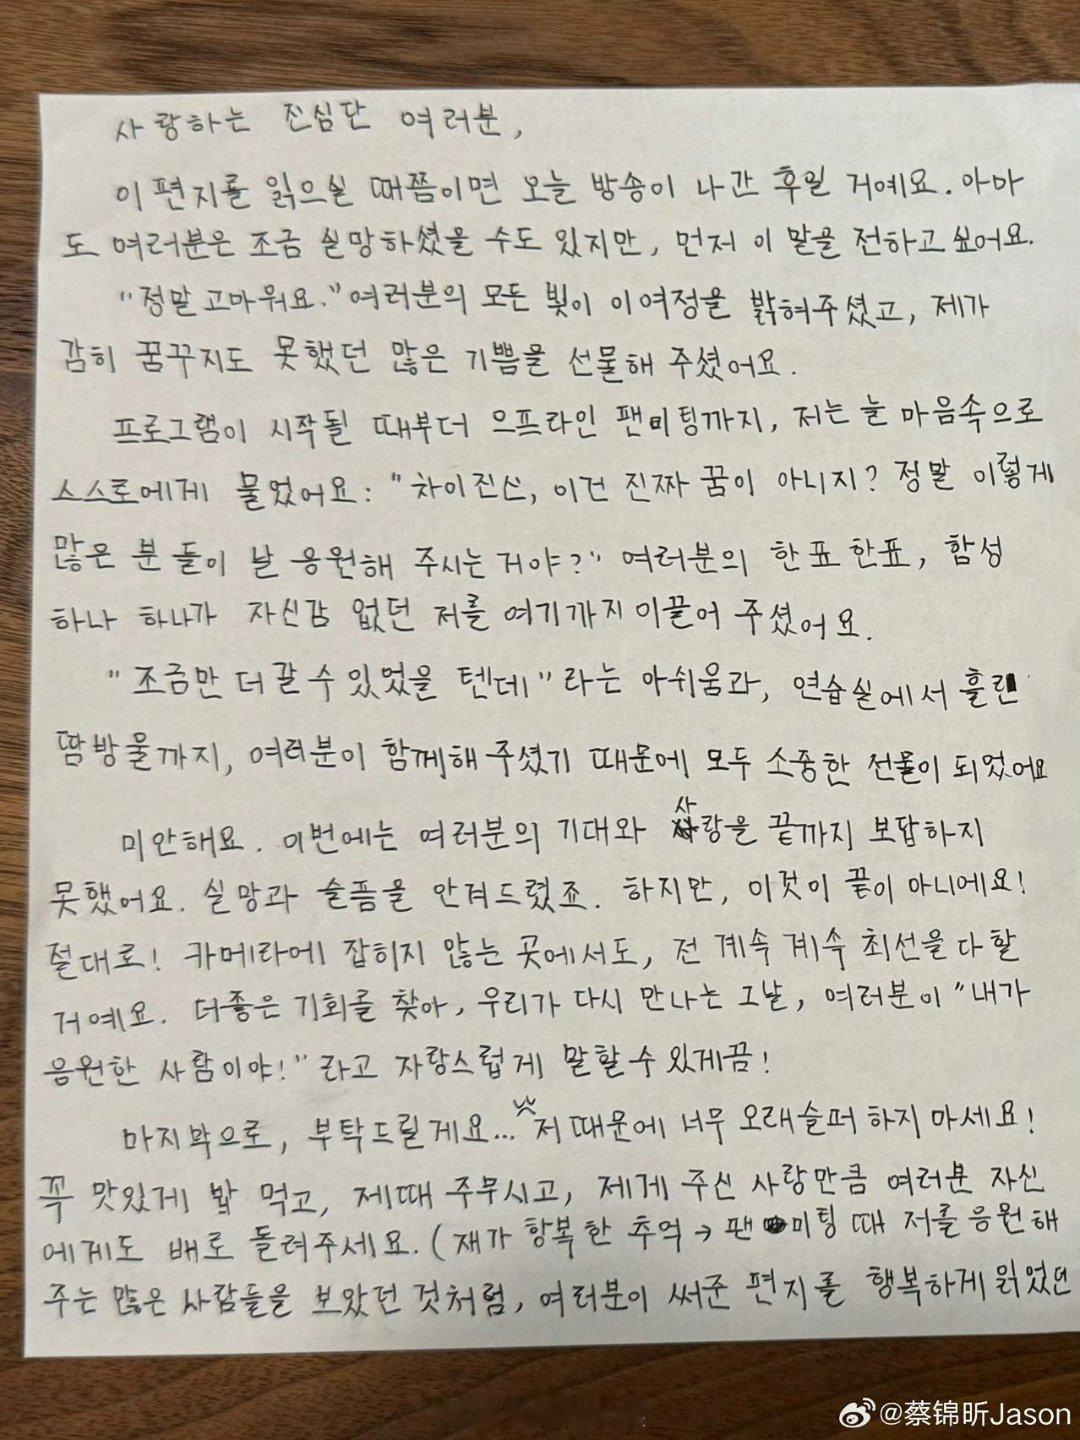 사랑하는 진심단 여러분,
이 편지를 읽으실 때쯤이면 오늘 방송이 나간 후일 거예요. 아마
도 여러분은 조금 실망하셨을 수도 있지만, 먼저 이 말을 전하고 싶어요.
"정말 고마워요." 여러분의 모든 빛이 이 여정을 밝혀주셨고, 제가
감히 꿈꾸지도 못했던 많은 기쁨을 선물해 주셨어요.
프로그램이 시작될 때부터 으프라인 팬미팅까지, 저는 늘 마음속으로
스스로에게 물었어요: "차이진신, 이건 진짜 꿈이 아니지? 정말 이렇게
많은 분들이 날 응원해 주시는 거야?" 여러분의 한표 한표, 함성
하나 하나가 자신감 없던 저를 여기까지 이끌어 주셨어요.
"조금만 더 갈 수 있었을 텐데"라는 아쉬움과, 연습실에서 흘린
땀방울까지, 여러분이 함께해 주셨기 때문에 모두 소중한 선물이 되었어요
미안해요. 이번에는 여러분의 기대와 사랑을 끝까지 보답하지
못했어요. 실망과 슬픔을 안겨드렸죠. 하지만, 이것이 끝이 아니에요!
절대로! 카메라에 잡히지 않는 곳에서도, 전 계속 계속 최선을 다할
거예요. 더좋은 기회를 찾아, 우리가 다시 만나는 그날, 여러분이 "내가
응원한 사람이야!"라고 자랑스럽게 말할 수 있게끔!
마지막으로, 부탁드릴게요... 저 때문에 너무 오래슬퍼 하지 마세요!
꼭 맛있게 밥 먹고, 제때 주무시고, 제게 주신 사랑만큼 여러분 자신
에게도 배로 돌려주세요. (재가 항복한 추억 → 팬미팅 때 저를 응원해
주는 많은 사람들을 보았던 것처럼, 여러분이 써준 편지를 행복하게 읽었던
@蔡锦昕Jason